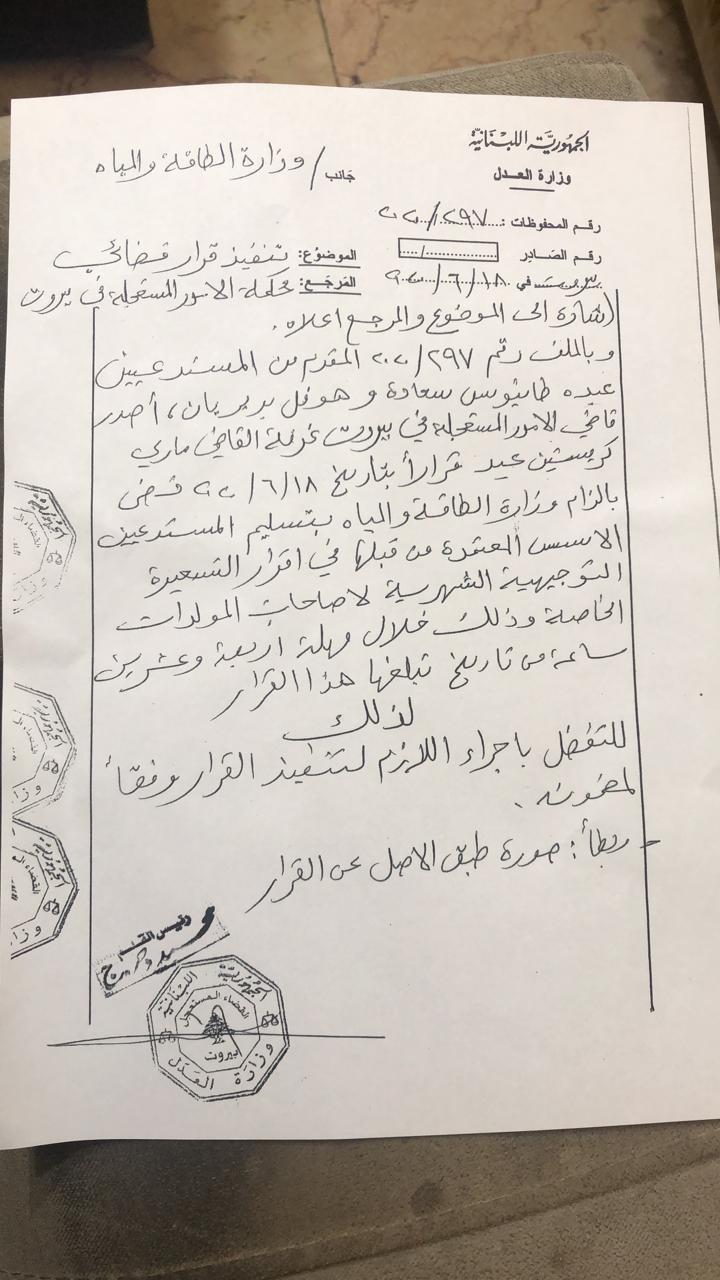 الجمهوريّة اللبنانيّة
وزارة العدل
جانب / وزارة الطاقة والمياه
رقم المحفوظات: ٢٩٧/٢٠٢٠
رقم الصادر
بيروت في ١٨/٦/٢٠٢٠
الموضوع: تنفيذ قرار قضائي
المرجع: محكمة الامور المستعجلة في بيروت
إشارة الى الموضوع والمرجع اعلاه.
وبالملف رقم ٢٩٧/٢٠٢٠ المقدم من المستدعيين
عبده طانيوس سعادة و هوفل بربريان، أصدر
قاضي الامور المستعجلة في بيروت غرفة القاضي ماري
كريستين عيد قراراً بتاريخ ١٨/٦/٢٠٢٠ قضى
بالزام وزارة الطاقة والمياه بتسليم المستدعيين
الاسس المعتمدة من قبلها في اقرار التسعيرة
التوجيهية الشهرية لاصحاب المولدات
الخاصة وذلك خلال مهلة اربعة وعشرين
ساعة من تاريخ تبلغها هذا القرار
لذلك
للتفضل باجراء اللازم لتنفيذ القرار وفقاً
لمضمونه.
- ربطاً: صورة طبق الاصل عن القرار
رئيس القلم
الجمهوريّة اللبنانيّة
القضاء المستعجل
بيروت
وزارة العدل